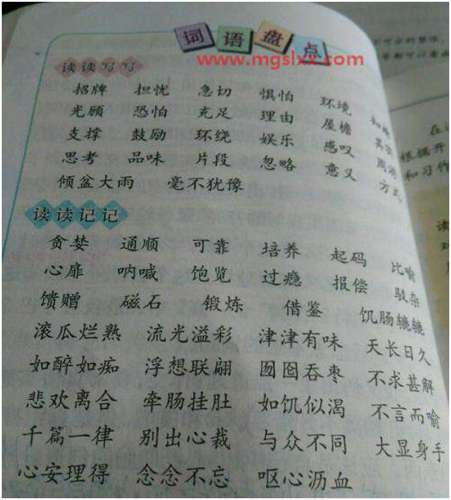 词语盘点
www.mgslxx.com
读读写写
招牌 担忧 急切 惧怕 环境
光顾 恐怕 充足 理由 屋檐
支撑 鼓励 环绕 娱乐 感叹
思考 品味 片段 忽略 意义 方式
倾盆大雨 毫不犹豫
读读记记
贪婪 通顺 可靠 培养 起码 比喻
心扉 呐喊 饱览 过瘾 报偿 驳杂
馈赠 磁石 锻炼 借鉴 饥肠辘辘
滚瓜烂熟 流光溢彩 津津有味 天长日久
如醉如痴 浮想联翩 囫囵吞枣 不求甚解
悲欢离合 牵肠挂肚 如饥似渴 不言而喻
千篇一律 别出心裁 与众不同 大显身手
心安理得 念念不忘 呕心沥血